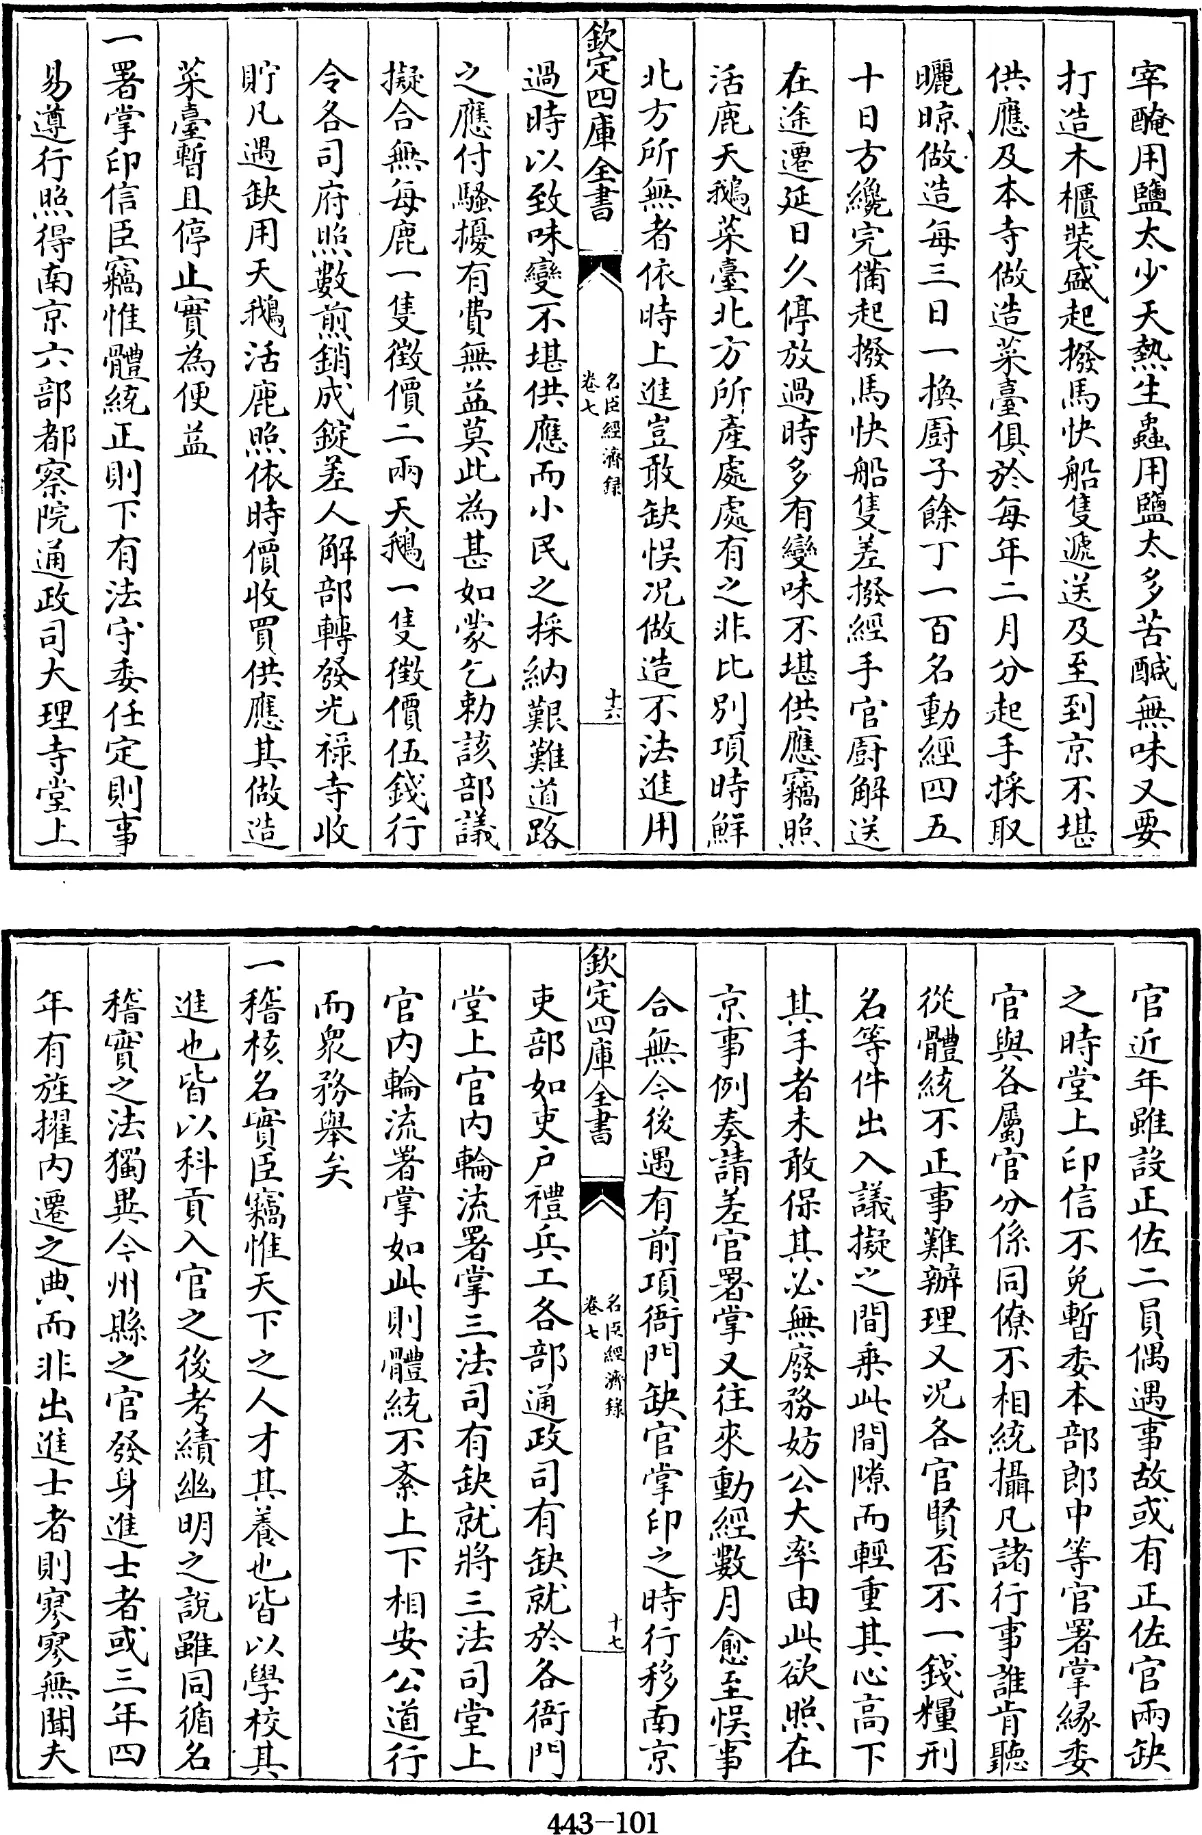 宰醃用鹽太少天熱生蟲用鹽太多苦醎無味又要
打造木櫃裝盛起撥馬快船隻遞送及至到京不堪
供應及本寺做造菜臺俱於每年二月分起手採取
曬晾做造每三日一換厨子餘丁一百名動經四五
十日方纔完備起撥馬快船隻差撥經手官厨解送
在途遷延日久停放過時多有變味不堪供應竊照
活鹿天鵝菜臺北方所產處處有之非比別項時鮮
北方所無者依時上進豈敢缺悮况做造不法進用
欽定四庫全書
名臣經濟録
卷七
十六
過時以致味變不堪供應而小民之採納艱難道路
之應付騷擾有費無益莫此為甚如蒙乞勅該部議
擬合無每鹿一隻徵價二兩天鵝一隻徵價伍錢行
令各司府照數煎銷成錠差人解部轉發光祿寺收
貯凡遇缺用天鵝活鹿照依時價收買供應其做造
菜臺暫且停止實為便益
一署掌印信臣竊惟體統正則下有法守委任定則事
易遵行照得南京六部都察院通政司大理寺堂上
官近年雖設正佐二員偶遇事故或有正佐官兩缺
之時堂上印信不免暫委本部郎中等官署掌緣委
官與各屬官分係同僚不相統攝凡諸行事誰肯聽
從體統不正事難辦理又况各官賢否不一錢糧刑
名等件出入議擬之間乗此間隙而輕重其心高下
其手者未敢保其必無廢務妨公大率由此欲照在
京事例奏請差官署掌又往來動經數月愈至悮事
合無今後遇有前項衙門缺官掌印之時行移南京
欽定四庫全書
名臣經濟錄
卷七
十七
吏部如吏戶禮兵工各部通政司有缺就於各衙門
堂上官內輪流署掌三法司有缺就將三法司堂上
官內輪流署掌如此則體統不紊上下相安公道行
而衆務舉矣
一稽核名實臣竊惟天下之人才其養也皆以學校其
進也皆以科貢入官之後考績幽明之說雖同循名
稽實之法獨異今州縣之官發身進士者或三年四
年有旌擢內遷之典而非出進士者則寥寥無聞夫
443-101